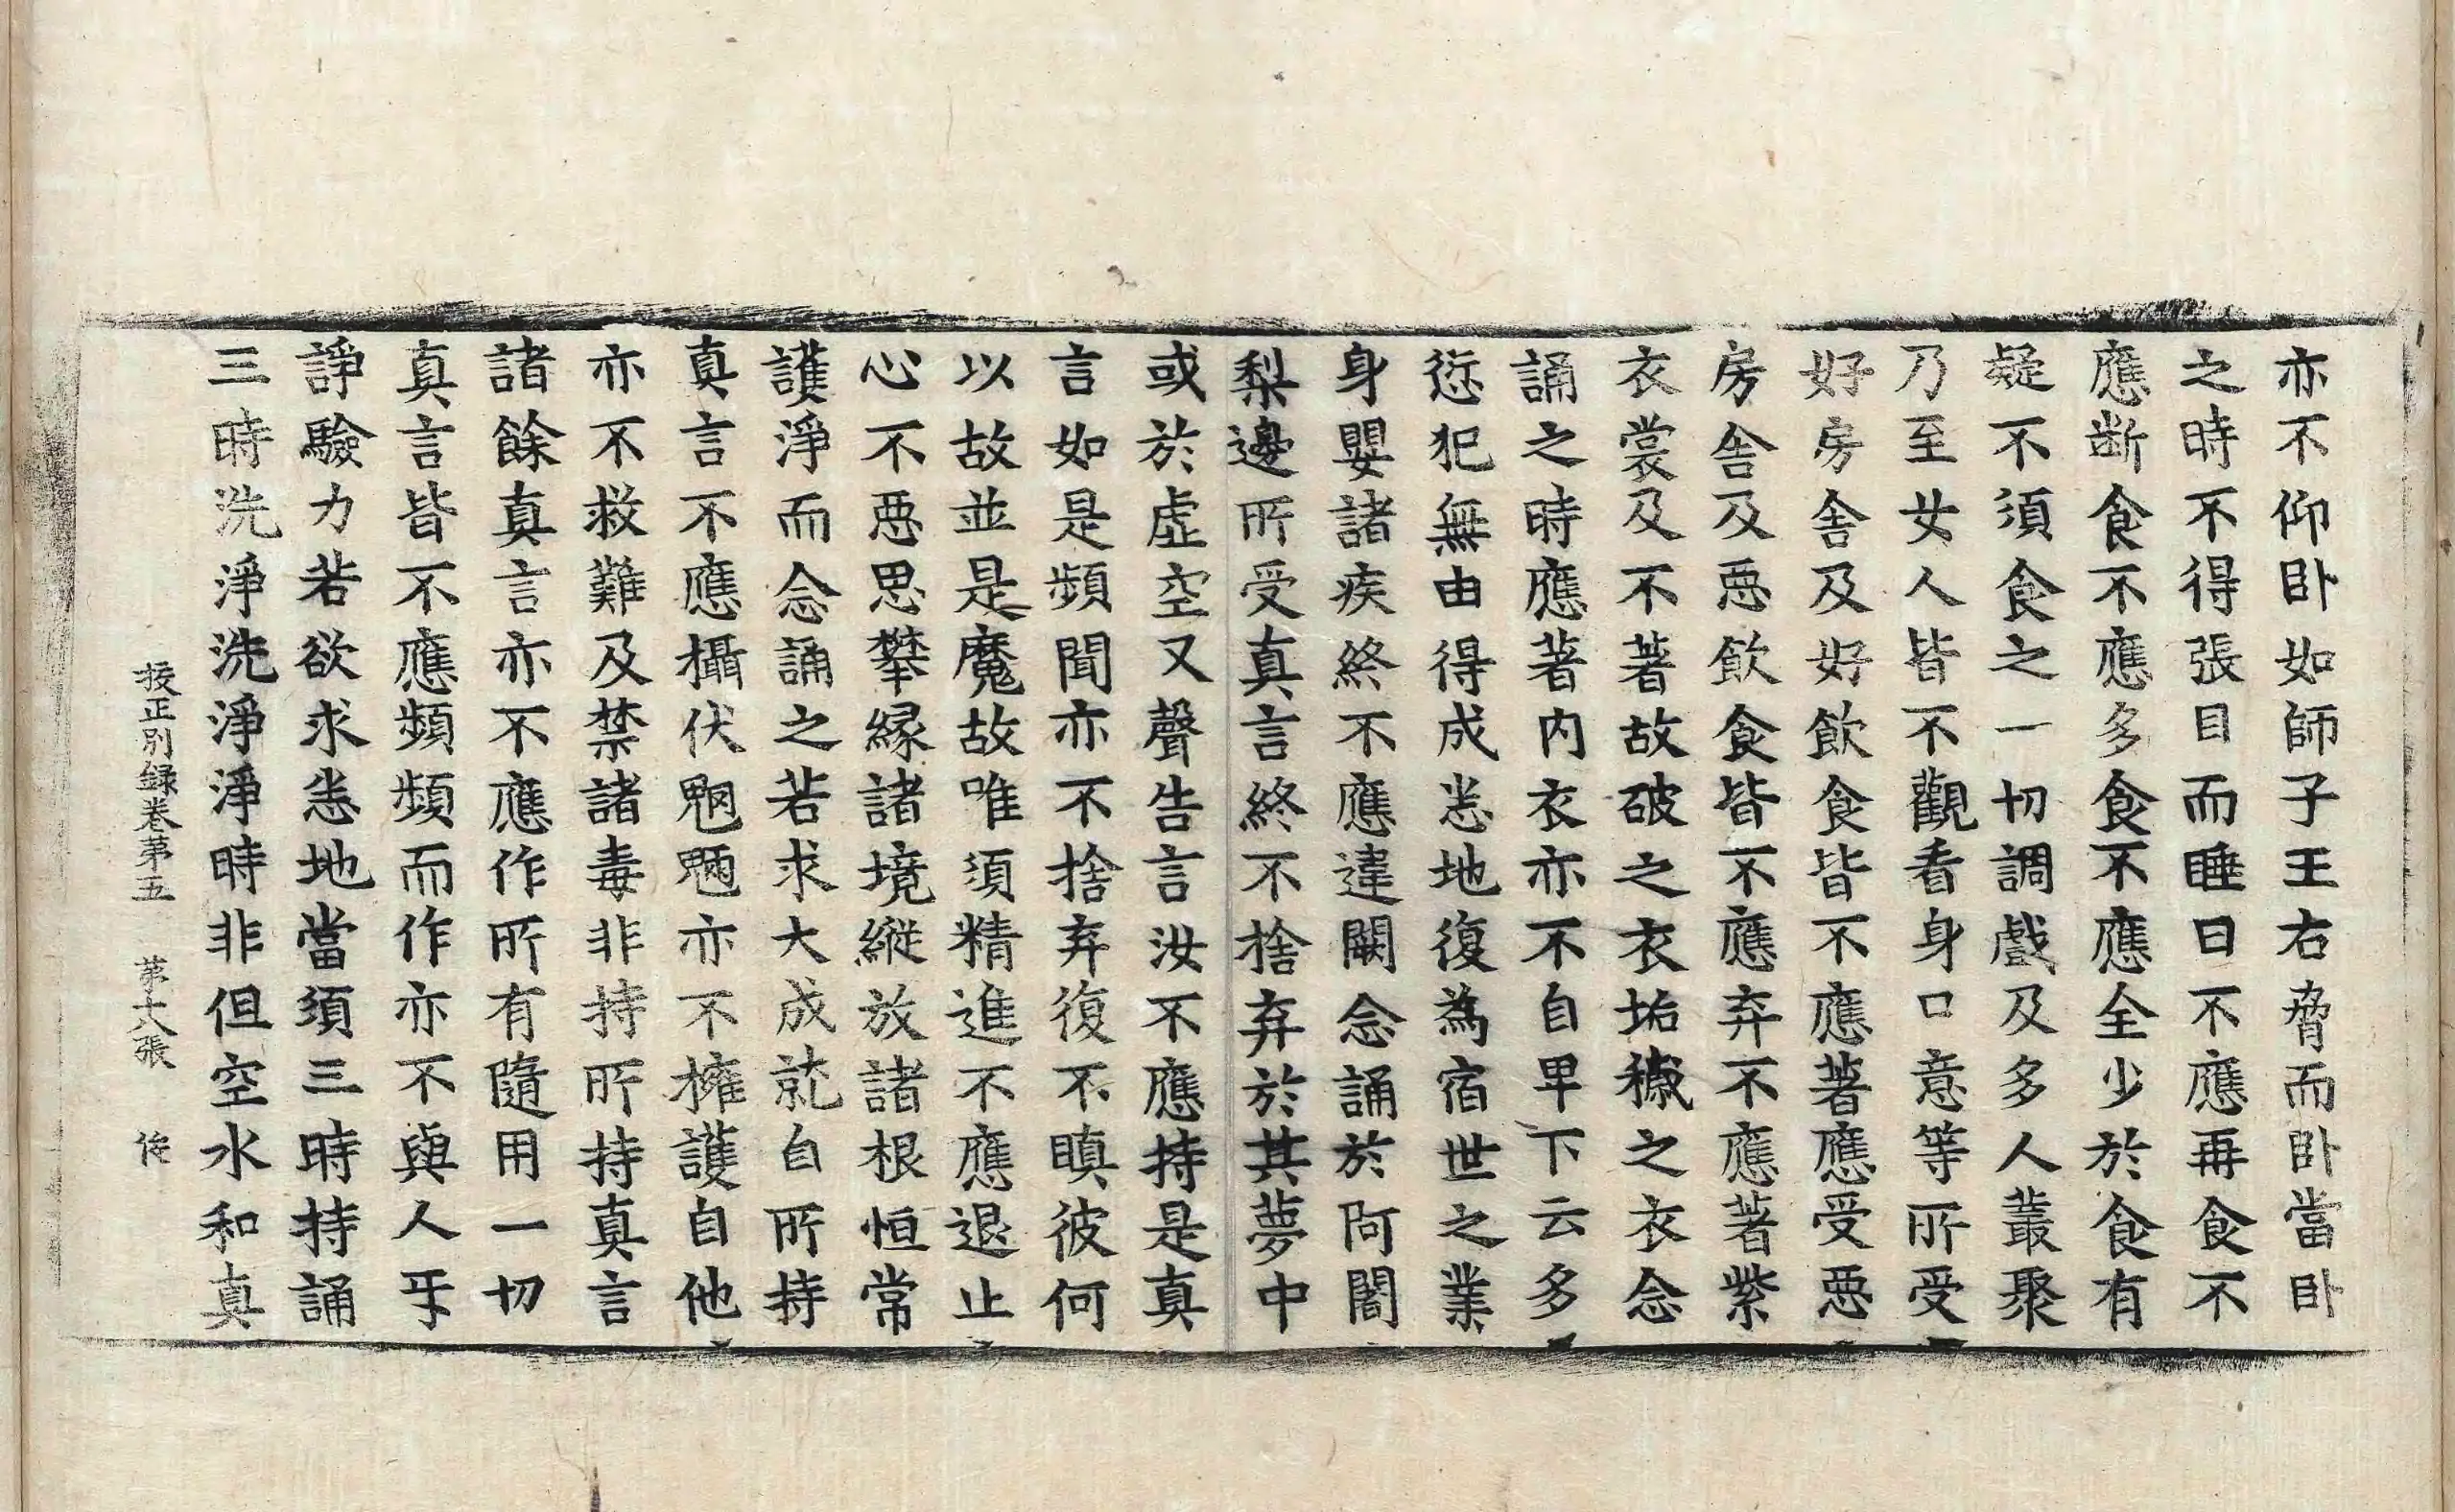 亦不仰卧如師子王右脅而卧當卧
之時不得張目而睡日不應再食不
應断食不應多食不應全少於食有
疑不須食之一切調戲及多人叢聚
乃至女人皆不觀看身口意等所受
好房舎及好飲食皆不應著應受惡
房舎及惡飲食皆不應弃不應著紫
衣裳及不著故破之衣垢穢之衣念
誦之時應著内衣亦不自卑下云多
愆犯無由得成悉地復為宿世之業
身嬰諸疾終不應違闕念誦於阿闍
梨邊所受真言終不捨弃於其夢中
或於虚空又聲告言汝不應持是真
言如是頻聞亦不捨弃復不瞋彼何
以故並是魔故唯須精進不應退止
心不惡思攀縁諸境縦放諸根恒常
護淨而念誦之若求大成就自所持
真言不應攝伏魍魎亦不擁護自他
亦不救難及禁諸毒非持所持真言
諸餘真言亦不應作所有隨用一切
真言皆不應頻頻而作亦不與人乎
諍驗力若欲求悉地當須三時持誦
三時洗淨洗淨淨時非但空水和真
挍正別録卷苐五　苐十八張